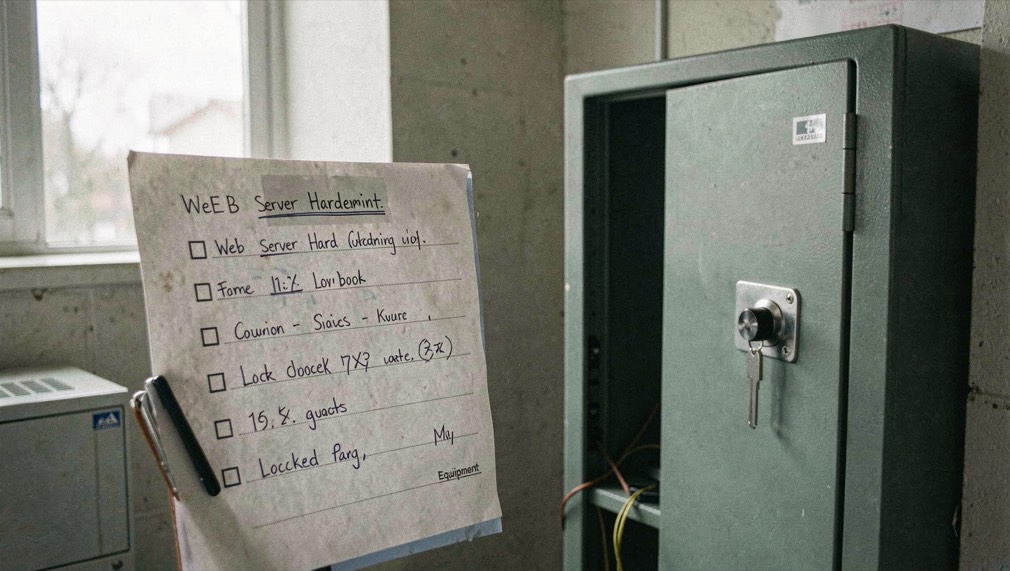 WeEB Server Hardemint.
Web Server Hard
Fome Lovi book
Couvrion - Siaics - Kuure
Lock doocek 7X3
15. %. guacts
Loccked Parg, May
Equipment